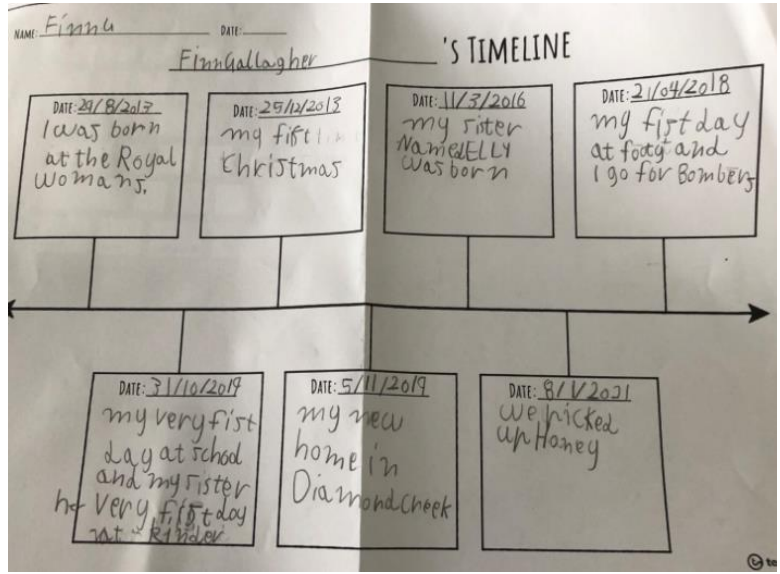 NAME: Finn G DATE:
Finn Gallagher 'S TIMELINE
DATE: 29/8/2013
I was born
at the Royal
Womans.
DATE: 25/12/2013
my fist
Christmas
DATE: 11/3/2016
my sister
Named ELLY
was born
DATE: 21/04/2018
my fist day
at footy and
I go for Bombers
DATE: 31/10/2019
my very fist
day at school
and my sister
her very fist day
at Kinder
DATE: 5/11/2019
my new
home in
Diamond cheek
DATE: 8/1/2021
we picked
up Honey